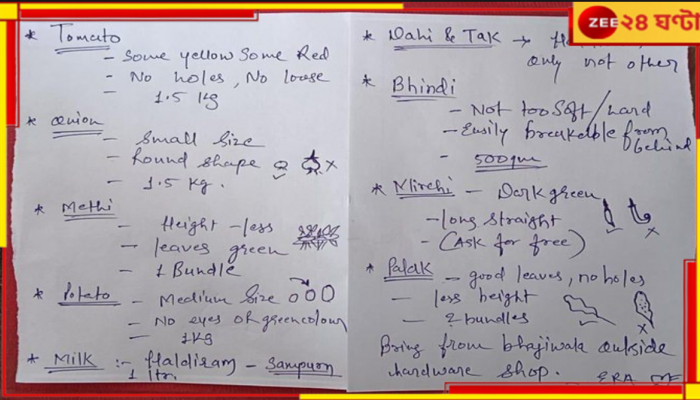 * Tomato
- Some yellow Some Red
- No holes, No loose
- 1.5 kg
* Onion
- Small Size
- Round shape
- 1.5 Kg.
* Methi
- Height - less
- leaves green
- 1 Bundle
* Potato - Medium Size
- No eyes or green colour
- 1 Kg
* Milk :- Haldiram - Sampurn
1 ltr.
ZEE ২৪ ঘণ্টা
* Dahi & Tak →
only not other
* Bhindi
- Not too soft / hard
- Easily breakable from behind
- 500gm
* Mirchi - Dark green
- long straight
- (Ask for free)
* Palak - good leaves, no holes
- less height
- 2 bundles
Bring from bhajiwala outside
hardware shop.